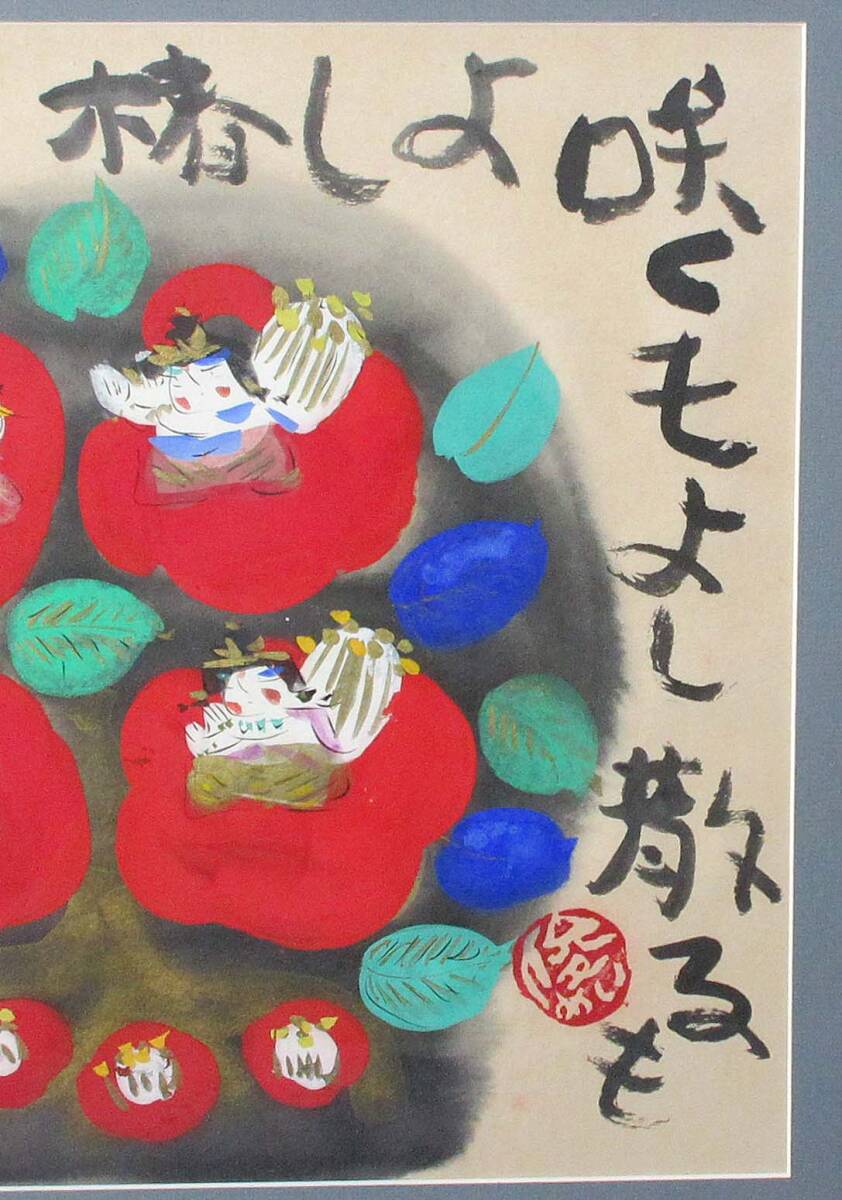 咲くもよし散るも
よし椿